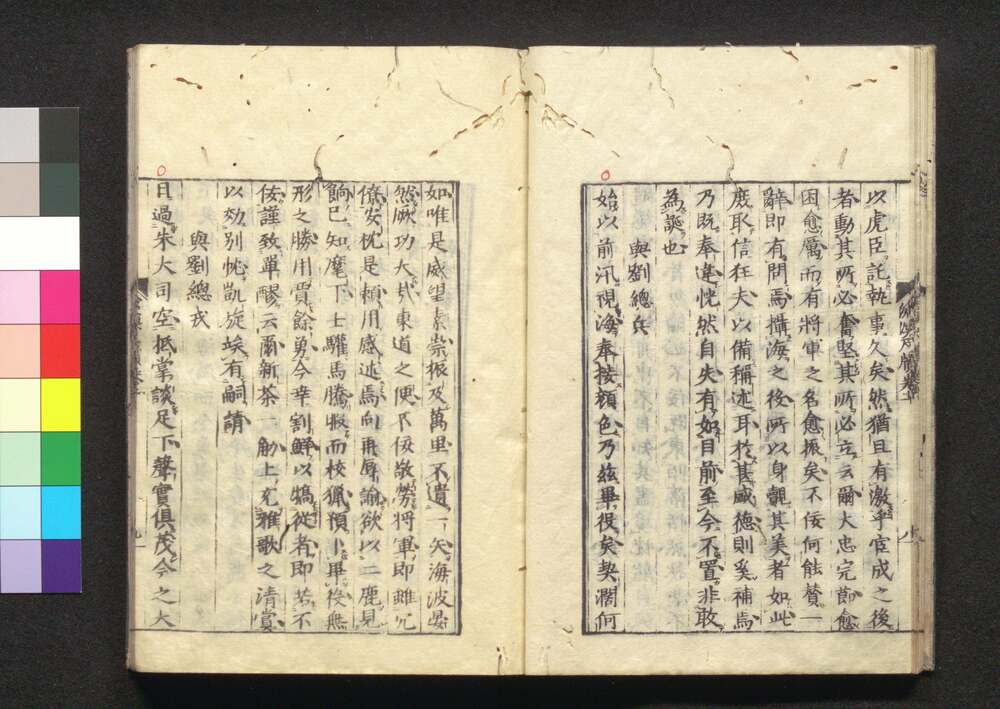 以虎臣託執事久矣然猶且有激乎官成之後
者動其所必奮堅其所必立云爾大忠完節愈
困愈厲而有將軍之名愈振矣不佞何能贊一
辭即有間焉攝海之後所以身親其美者如此
度取信狂夫以備稱述耳於甚盛德則奚補焉
乃既奉違恍然自失有如目前至今不置非敢
為誕也
與劉總兵
始以前汛視海奉按顏色乃茲畢役矣契闊何
如唯是威望素崇振及萬里不遺一矢海波安
然厥功大哉東道之便不佞敬勞將軍即雖冗
僚安枕是賴用感述焉向再辱諭欲以二鹿見
餉已知麾下士驩馬騰服而校獵預卜畢役無
形之勝用賈餘勇今幸割鮮以犒從者即蒙不
佞謹致單醪云爾新茶 觔上充雅歌之清賞
以効別忱凱旋竢有嗣請
與劉總戎
日過朱大司空抵掌談足下聲實俱茂今之大